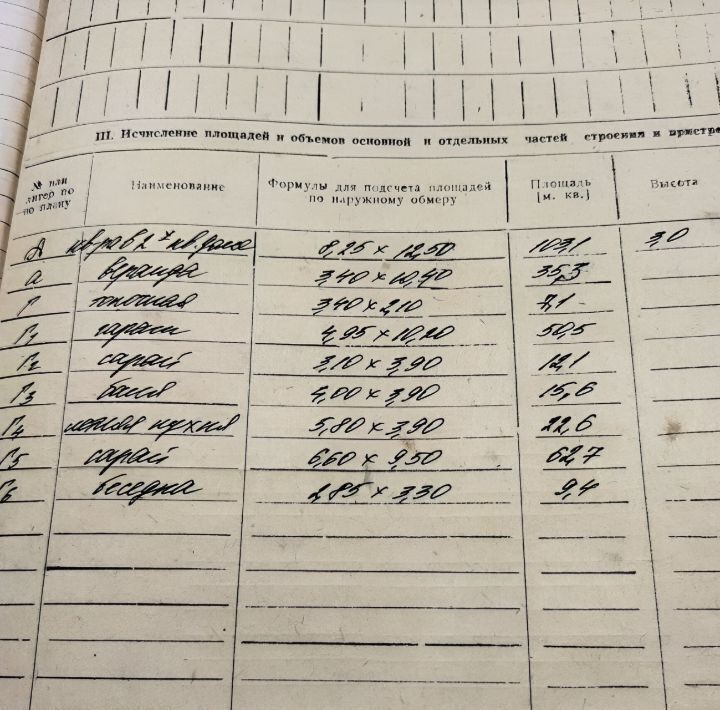 III. Исчисление площадей и объемов основной и отдельных частей строения и пристро
№ или литер по по плану Наименование Формулы для подсчета площадей по наружному обмеру Площадь [м. кв.] Высота
А кв-ра в 2х кв. доме 8,25 × 12,50 103,1 3,0
а веранда 3,40 × 10,40 35,3
Г топочная 3,40 × 2,10 7,1
Г1 гараж 4,95 × 10,20 50,5
Г2 сарай 3,10 × 3,90 12,1
Г3 баня 4,00 × 3,90 15,6
Г4 летняя кухня 5,80 × 3,90 22,6
Г5 сарай 6,60 × 9,50 62,7
Г6 беседка 2,85 × 3,30 9,4